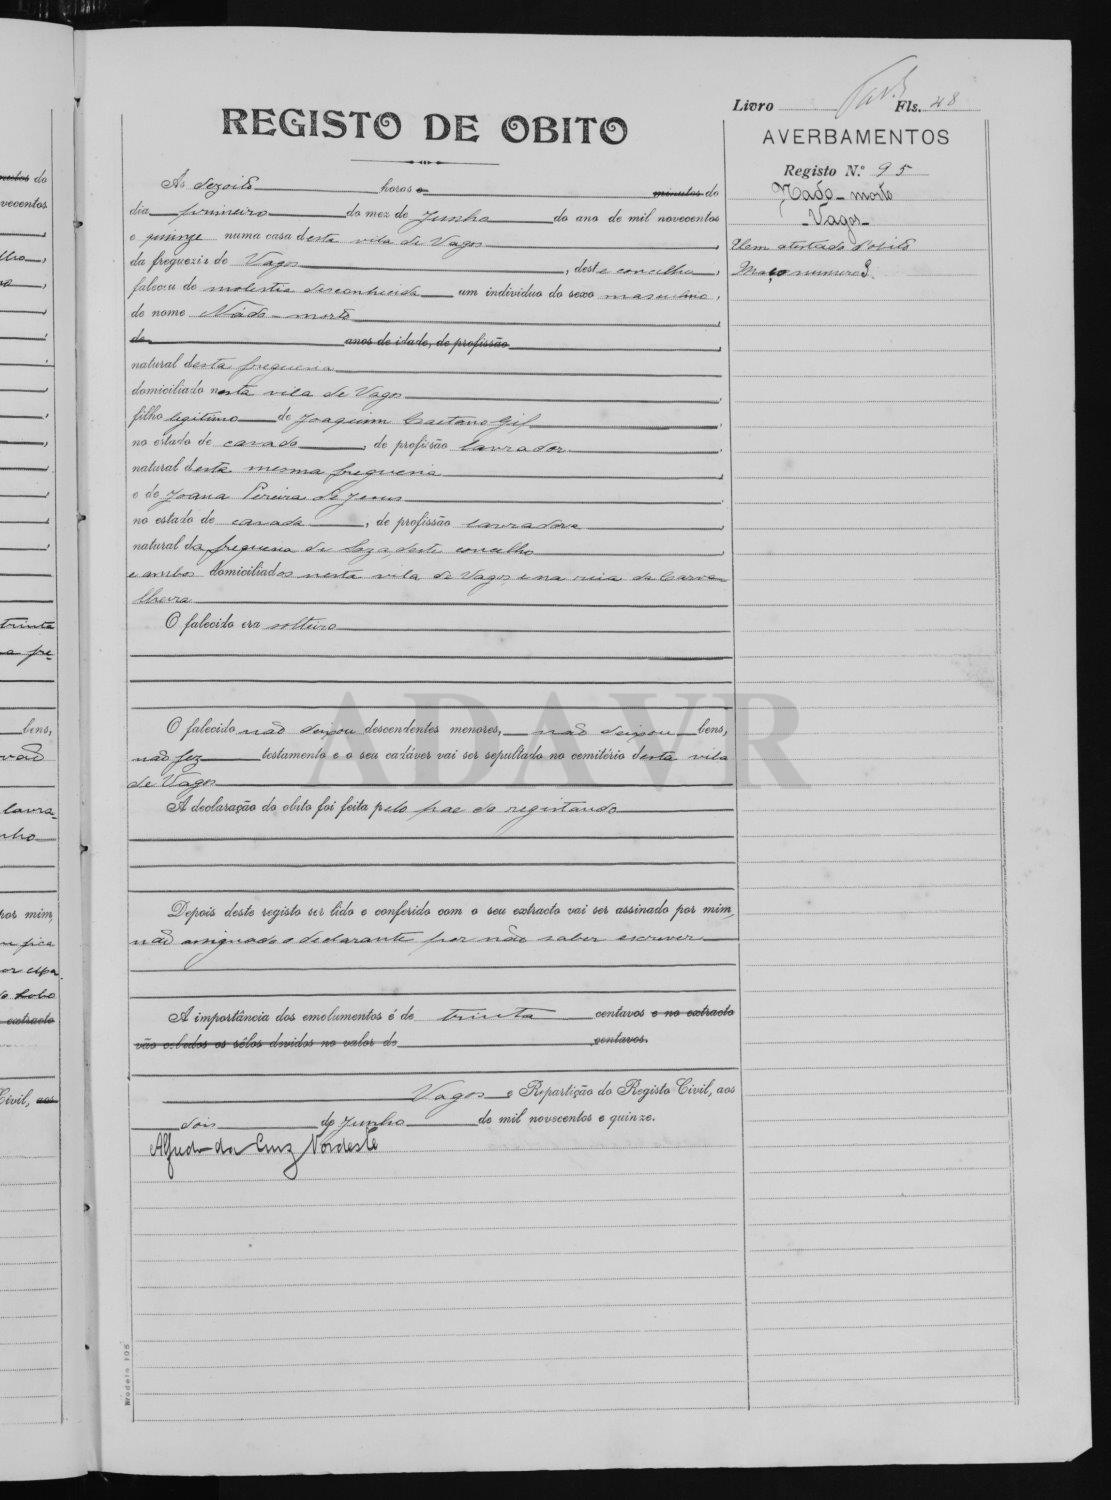 Livro Fls. 48
REGISTO DE OBITO
AVERBAMENTOS
Registo N.º 95
Nado-morto
-Vagos-
Tem atestado d'obito
Maço numero 3.
As dezoito horas e minutos do
dia primeiro do mez de Junho do ano de mil novecentos
e quinze numa casa desta vila de Vagos,
da freguezia de Vagos, deste concelho,
faleceu de molestia desconhecida um individuo do sexo masculino,
de nome Nado-morto,
de anos de idade, de profissão,
natural desta freguesia,
domiciliado nesta vila de Vagos,
filho legitimo de Joaquim Caetano Gil,
no estado de casado, de profissão lavrador,
natural desta mesma freguesia,
e de Joana Pereira de Jesus,
no estado de casada, de profissão lavradora,
natural da freguesia de Soza, deste concelho,
e ambos domiciliados nesta vila de Vagos e na rua da Carva-
lheira
O falecido era solteiro
O falecido não deixou descendentes menores, não deixou bens,
não fez testamento e o seu cadáver vai ser sepultado no cemitério desta vila
de Vagos
A declaração do obito foi feita pelo pae do registando
Depois deste registo ser lido e conferido com o seu extracto vai ser assinado por mim,
não assignado o declarante por não saber escrever
A importância dos emolumentos é de trinta centavos e no extracto
vão colados os sêlos devidos no valor de centavos.
Vagos e Repartição do Registo Civil, aos
dois de Junho de mil novecentos e quinze.
Alfredo da Cruz Nordeste
Modelo 105
ADAVR